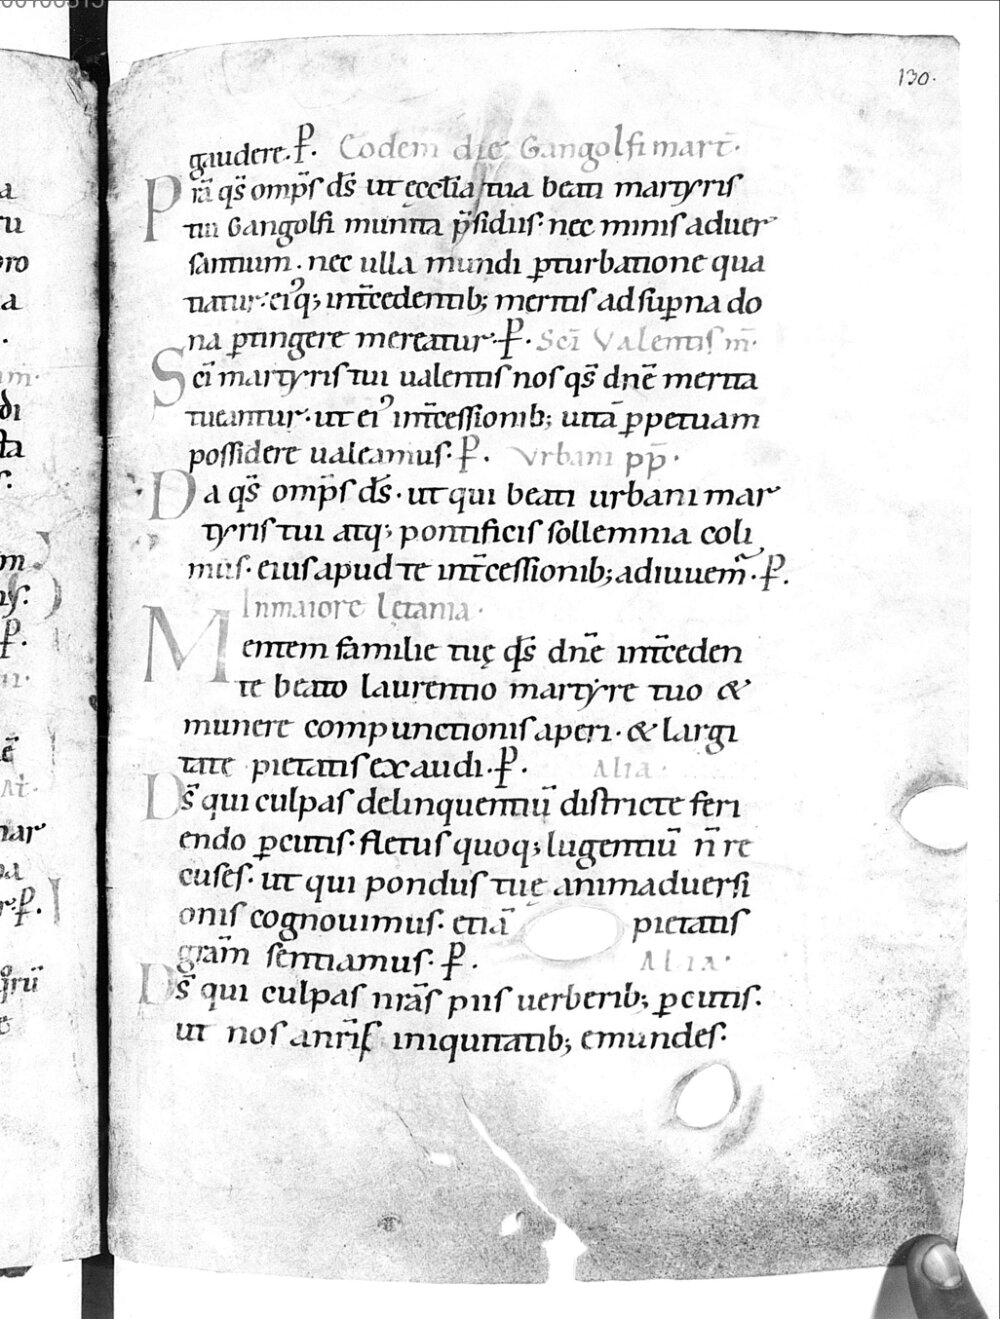 130.
gaudere. P̄. Eodem die Gangolfi mart̄.
Prā qs̄ omp̄s ds̄ ut ęcctia tua beati martyris
tui Gangolfi munita p̄sidiis· nec minis aduer
santium. nec ulla mundi ꝑturbatione qua
tiatur· ei'q; int̄cedentib; meritis ad suꝑna do
na ꝑtingere mereatur. P̄. Scī Valentis m̄.
Scī martyris tui ualentis nos qs̄ dn̄e merita
tueantur· ut ei' int̄cessionib; uitā ꝑpetuam
possidere ualeamus. P̄. Vrbani pp̄.
Da qs̄ omp̄s ds̄· ut qui beati urbani mar
tyris tui atq; pontificis sollemnia coli
mus· eius apud te int̄cessionib; adiuuem̄. P̄.
In maiore letania.
Mentem familie tuę qs̄ dn̄e int̄ceden
te beato laurentio martyre tuo &
munere compunctionis aperi· & largi
tate pietatis exaudi. P̄. Alia.
Ds̄ qui culpas delinquentiū districte feri
endo ꝑcutis· fletus quoq; lugentiū n̄ re
cuses· ut qui pondus tuę animaduersi
onis cognouimus· etiā pietatis
gratm̄ sentiamus. P̄. Alia.
Ds̄ qui culpas nrās piis uerberib; ꝑcutis.
ut nos a nr̄is iniquitatib; emundes.